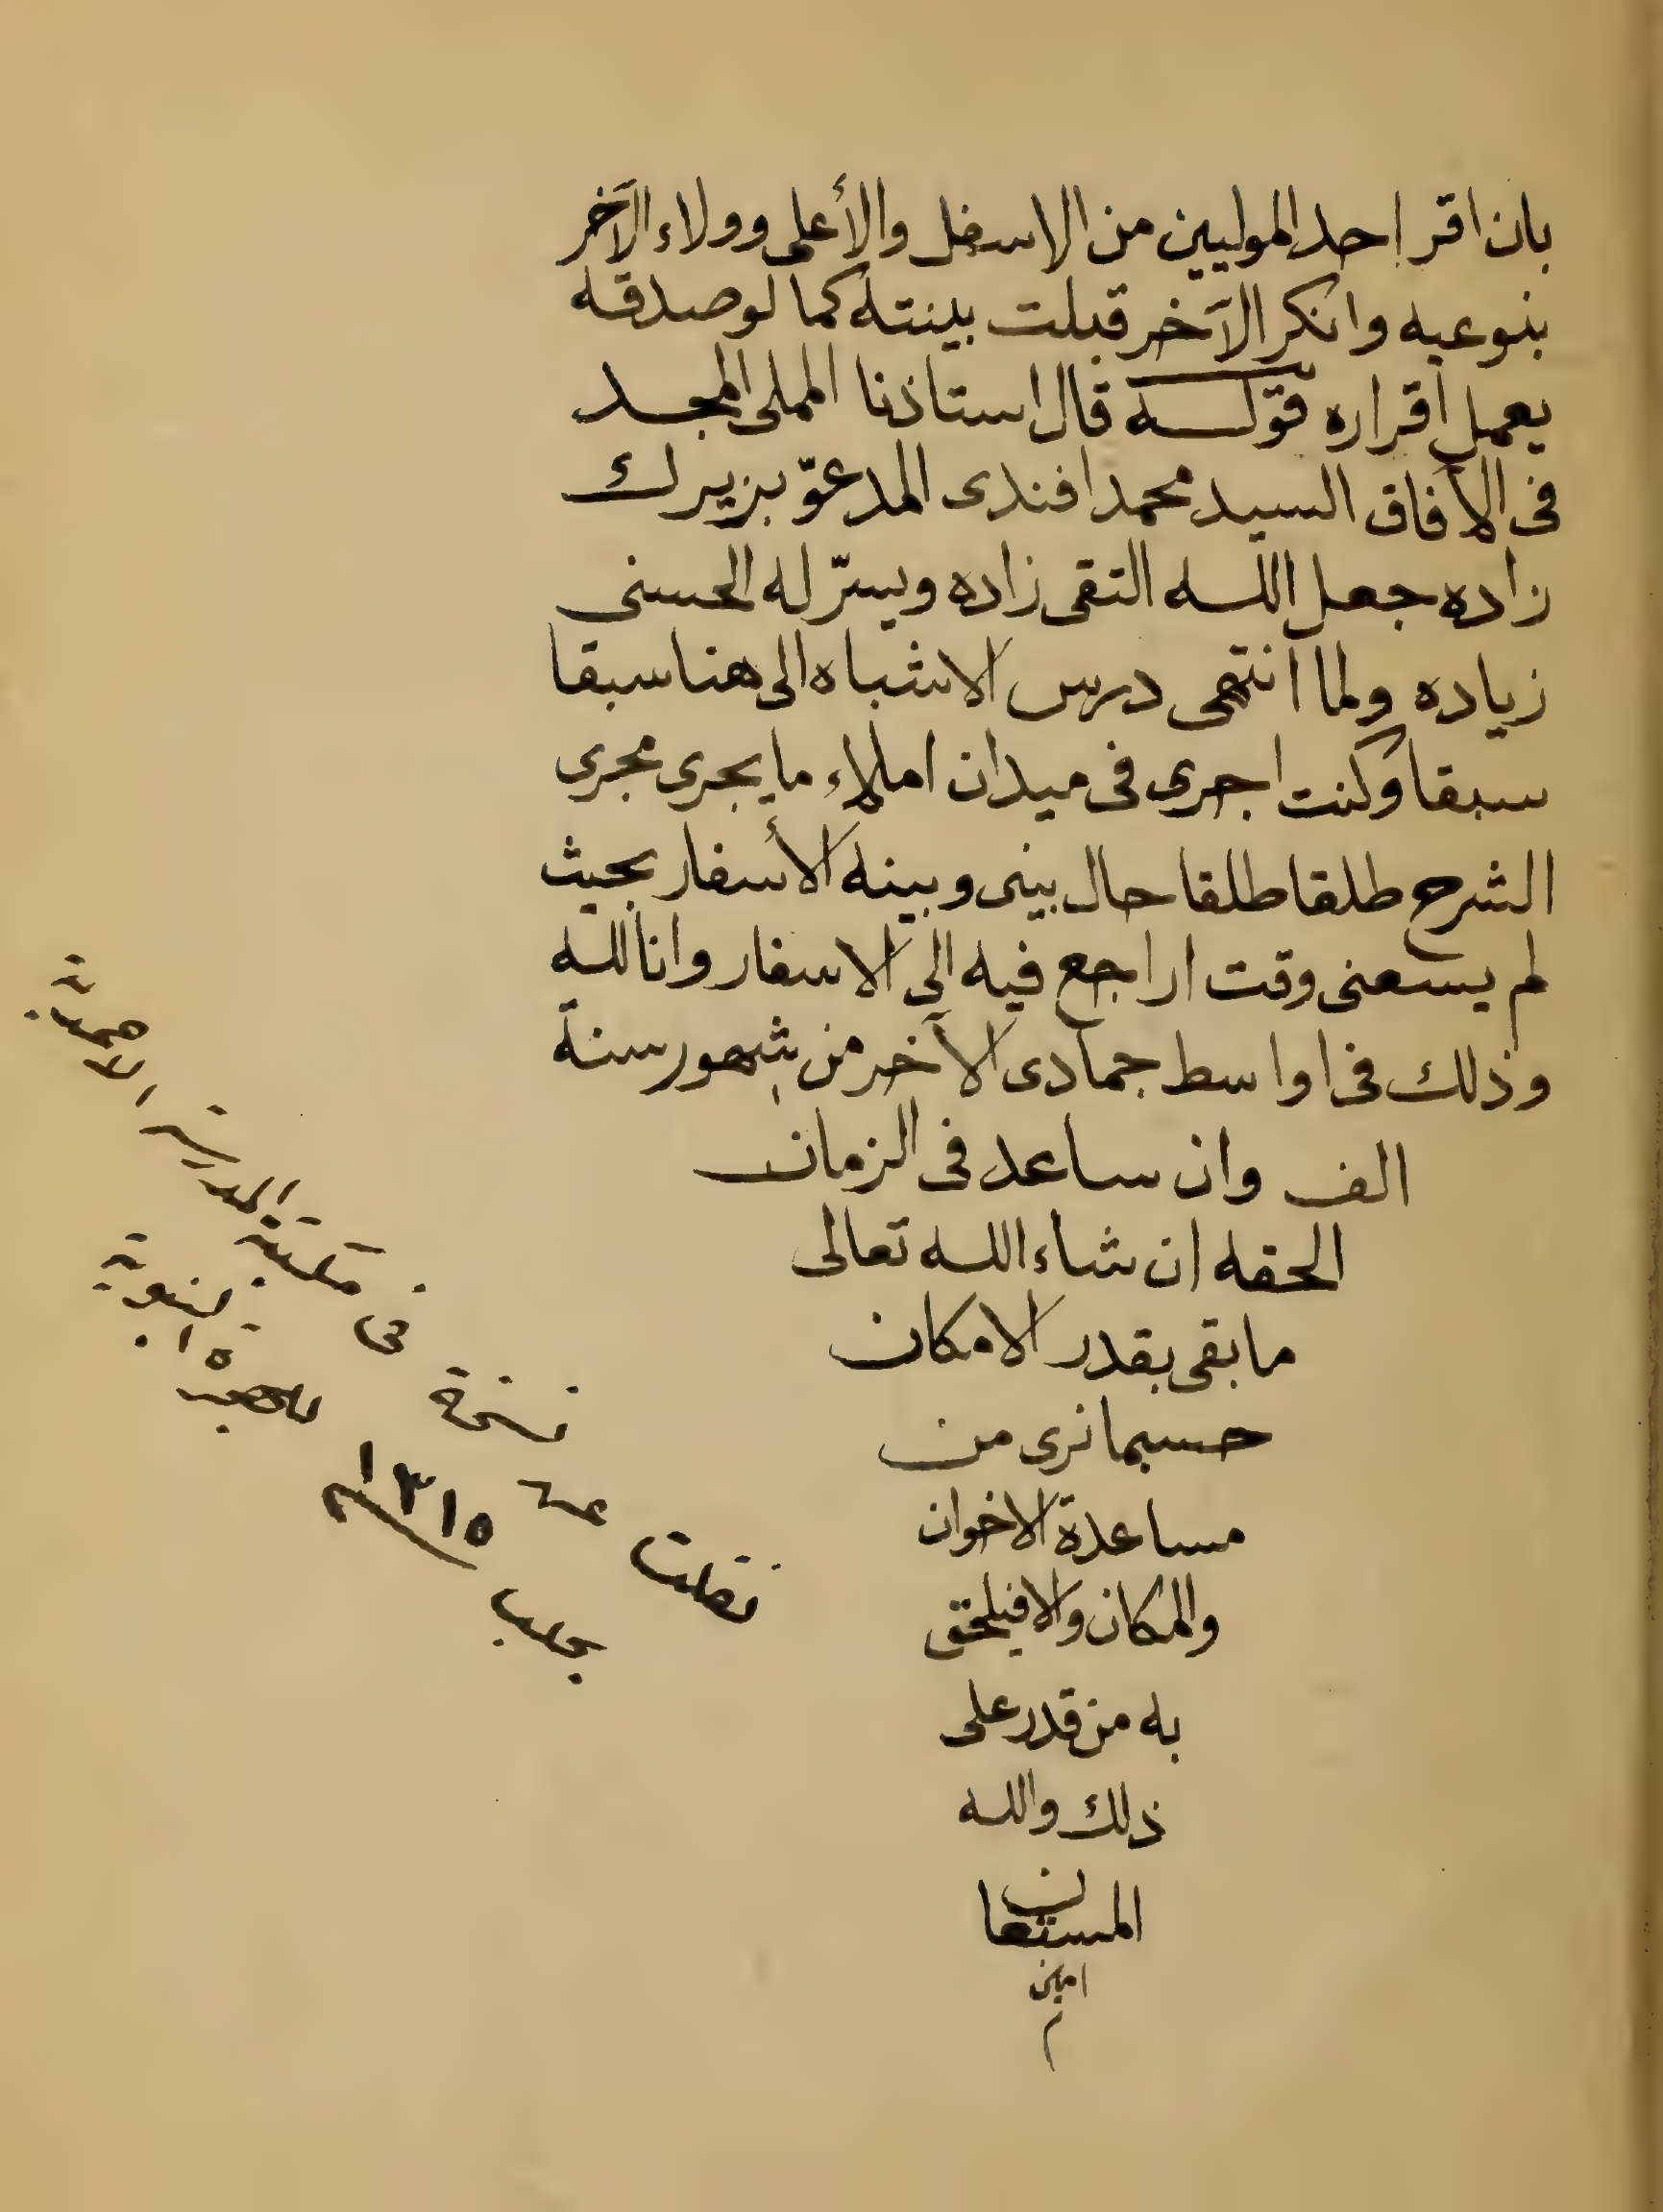 بان اقر احد الموليين من الاسفل والأعلى وولاء الآخر
بنوعيه وانكر الآخر قبلت بينته كما لو صدقه
يعمل اقراره قوله قال استاذنا المملى المجد
فى الآفاق السيد محمد افندى المدعوّ بزيرك
زاده جعل الله التقى زاده ويسّر له الحسنى
زياده ولما انتهى درس الاشباه الى هنا سبقا
سبقا وكنت اجرى فى ميدان املاء ما يجرى مجرى
الشرح طلقا طلقا حال بينى وبينه الأسفار بحيث
لم يسعنى وقت اراجع فيه الى الاسفار وانا لله
وذلك فى اواسط جمادى الآخر من شهور سنة
الف وان ساعد فى الزمان
الحقه ان شاء الله تعالى
ما بقى بقدر الامكان
حسبما نرى من
مساعدة الاخوان
والمكان والا فيلحق
به من قدر على
ذلك والله
المستعان
امين
م
نقلت عن نسخة فى مكتبة المدرسة الاحمدية
بحلب ١٣١٥ للهجرة النبوية